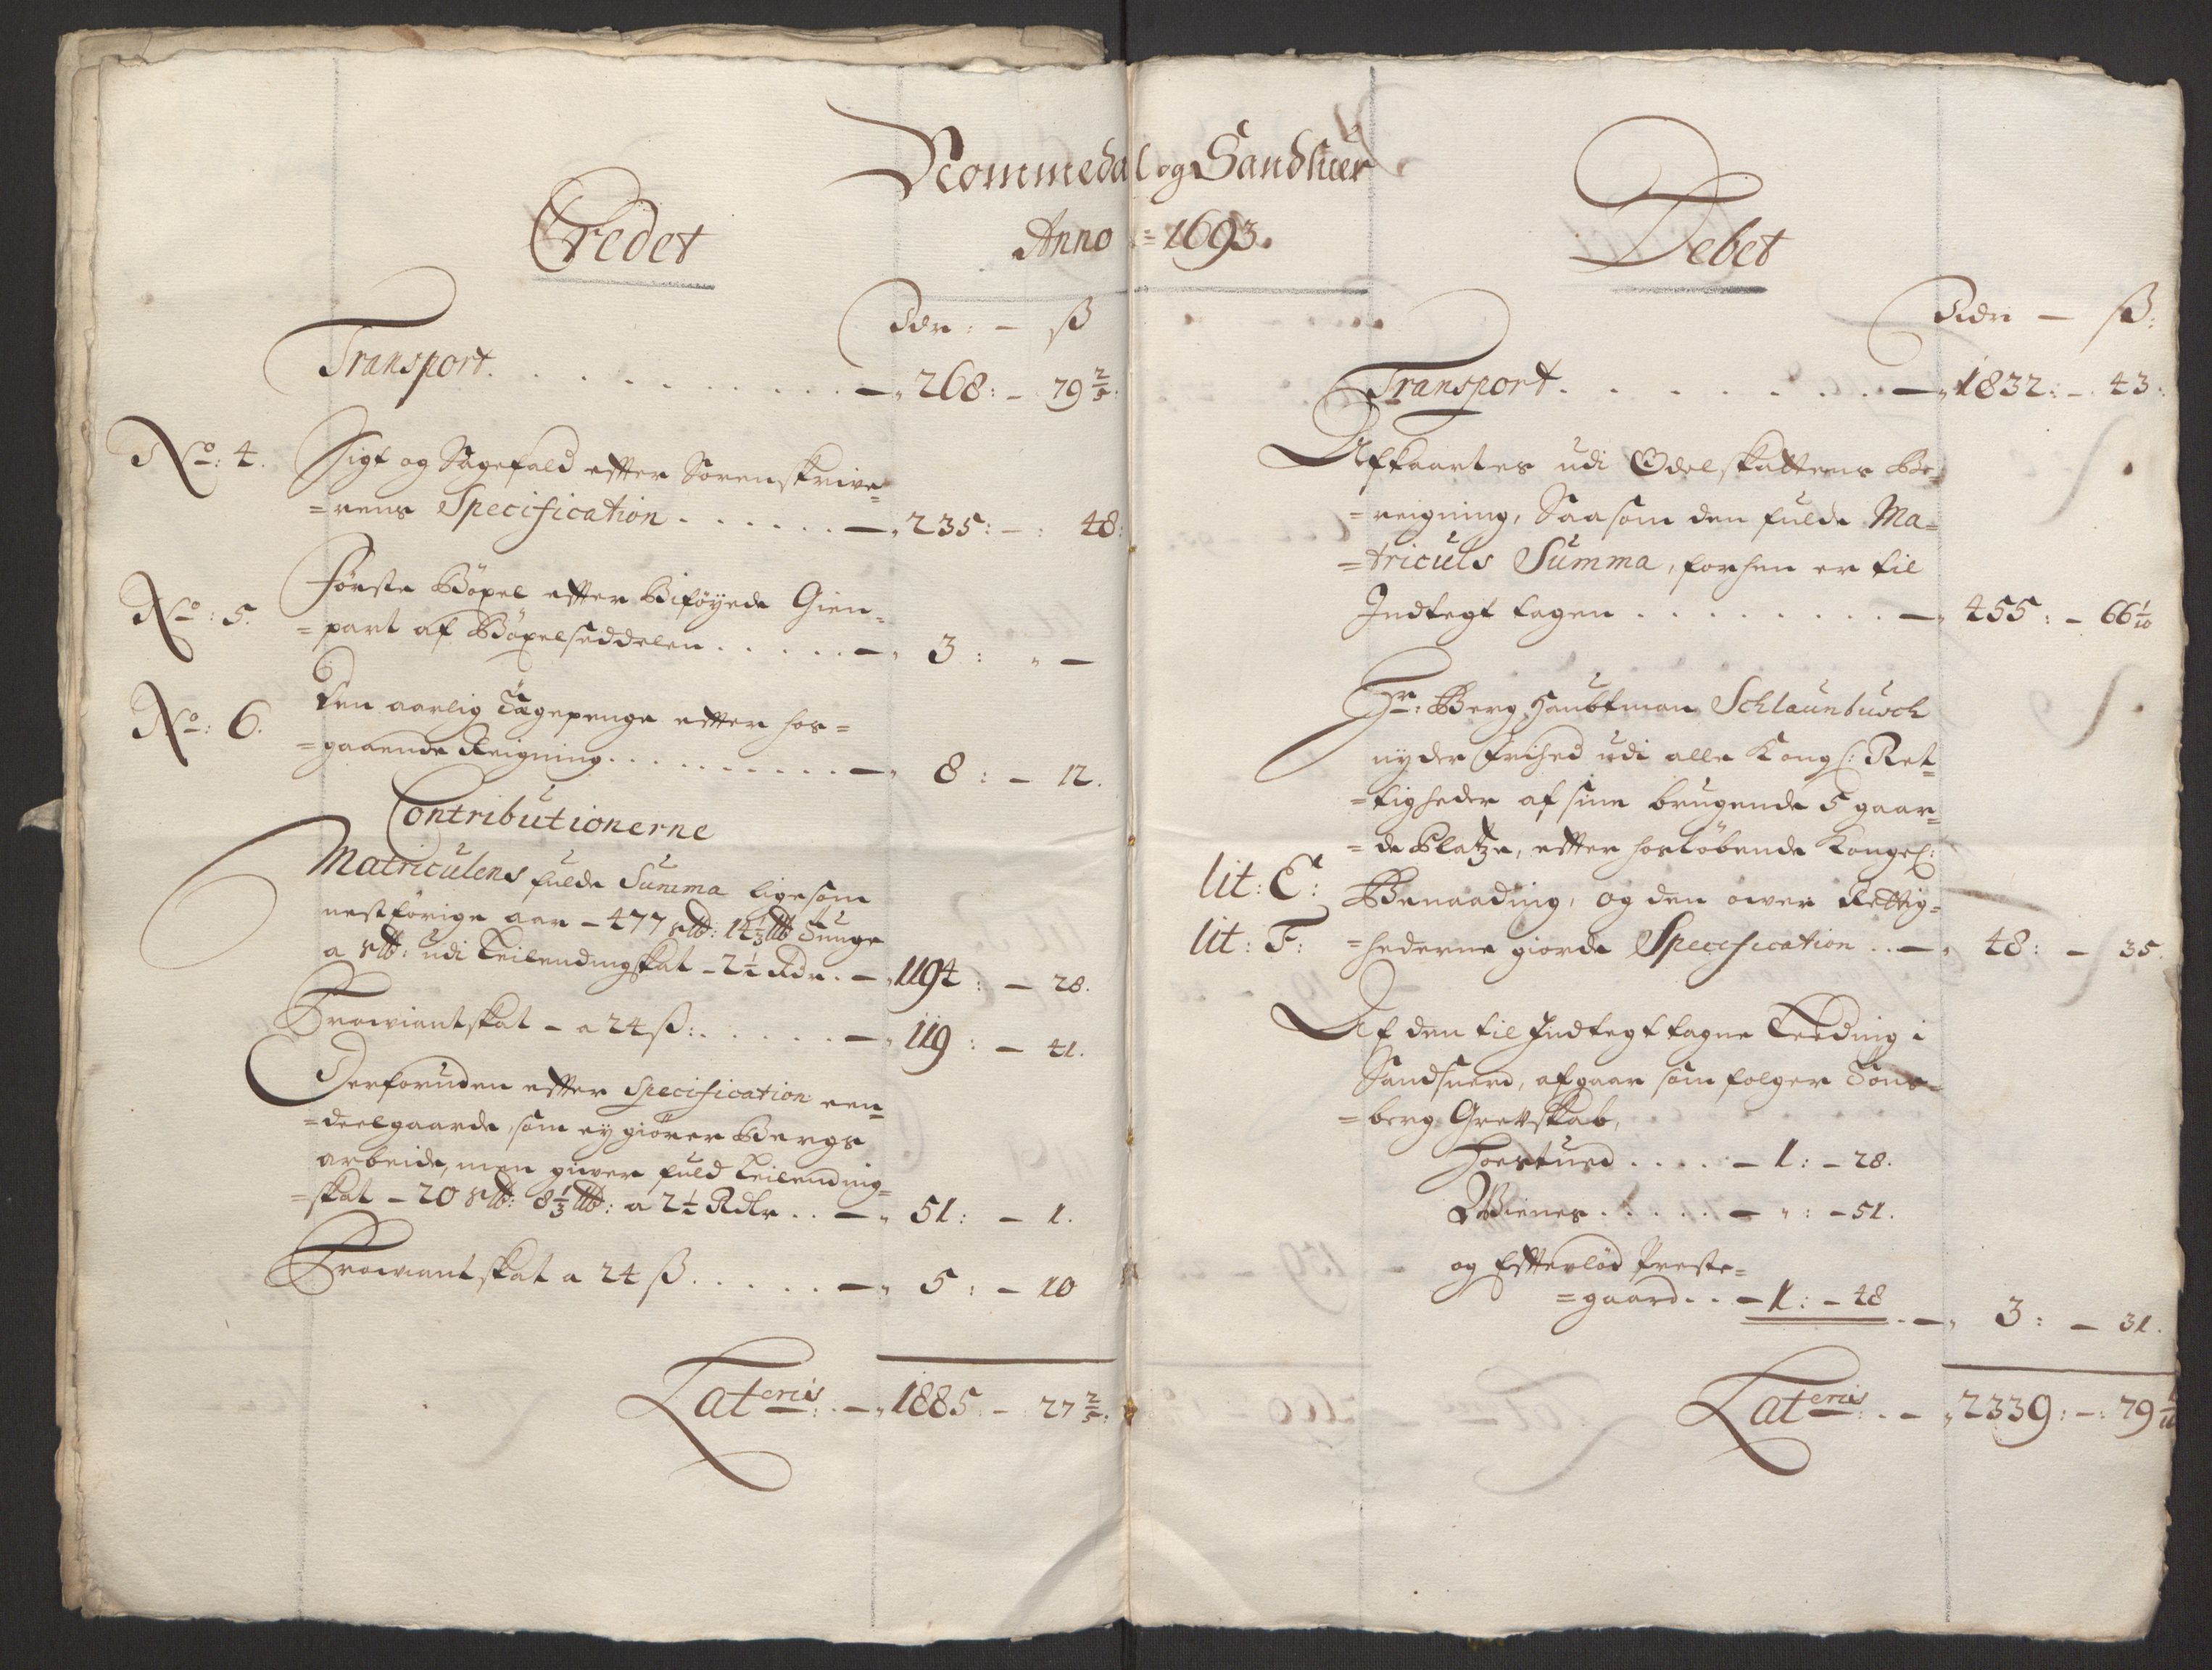 Nommedal og Sandsuer
Anno = 1693.
Credet
Rdr: – ß
Transport. – 268: – 79 2/5:
No: 4. Sigt og Sagefald effter Sorenskrive=
=rens Specification – 235: – 48:
No: 5. Förste Böxel effter Biföyede Gien=
=part af Böxelseddelen – 3: „ –
No: 6. Den aarlig Tagepenge effter hos=
=gaaende Reigning – 8: – 12.
Contributionerne
Matriculens fulde Summa ligesom
nestforige aar – 477 1/3
a udi Leilendingskat – 2 1/2 Rdr. – 1194: – 28.
Proviantskat – a 24 ß: – 119: – 41.
Derforuden effter Specification een=
=deel gaarde, som ey giörer Bergs
arbeide, men giver fuld Leilending=
=skat – 20 8 1/3 : a 2 1/2 Rdlr – 51: – 1.
Proviantskat a 24 ß – 5: – 10
Lateris – 1885 – 27 2/5:
Debet
Rdr – ß:
Transport. – 1832: – 43:
Afkaartes udi Odelskattens Be=
=reigning, Saasom den fulde Ma=
=triculs Summa, forhen er til
Indtegt tagen – 455: – 66 1/10
Hr: Berg Haubtman Schlaunbusch
nyder frihed udi alle Kongl: Ret=
=tigheder af sine brugende 5 gaar=
=de Platze, effter hosföbende Kongel:
lit: E: Benaading, og den over Rettig=
lit: F: =hederne giorde Specification – 48: – 35.
Af den til Indtegt tagne Leeding i
Sandsuerd, afgaar som folger Töns=
=berg Grefskab,
Hoestued – 1: – 28.
Wienes – „: – 51.
og Effterlöd Preste=
=gaard – 1: – 48 – 3: – 31.
Lateris – 2339: –: 79 1/10